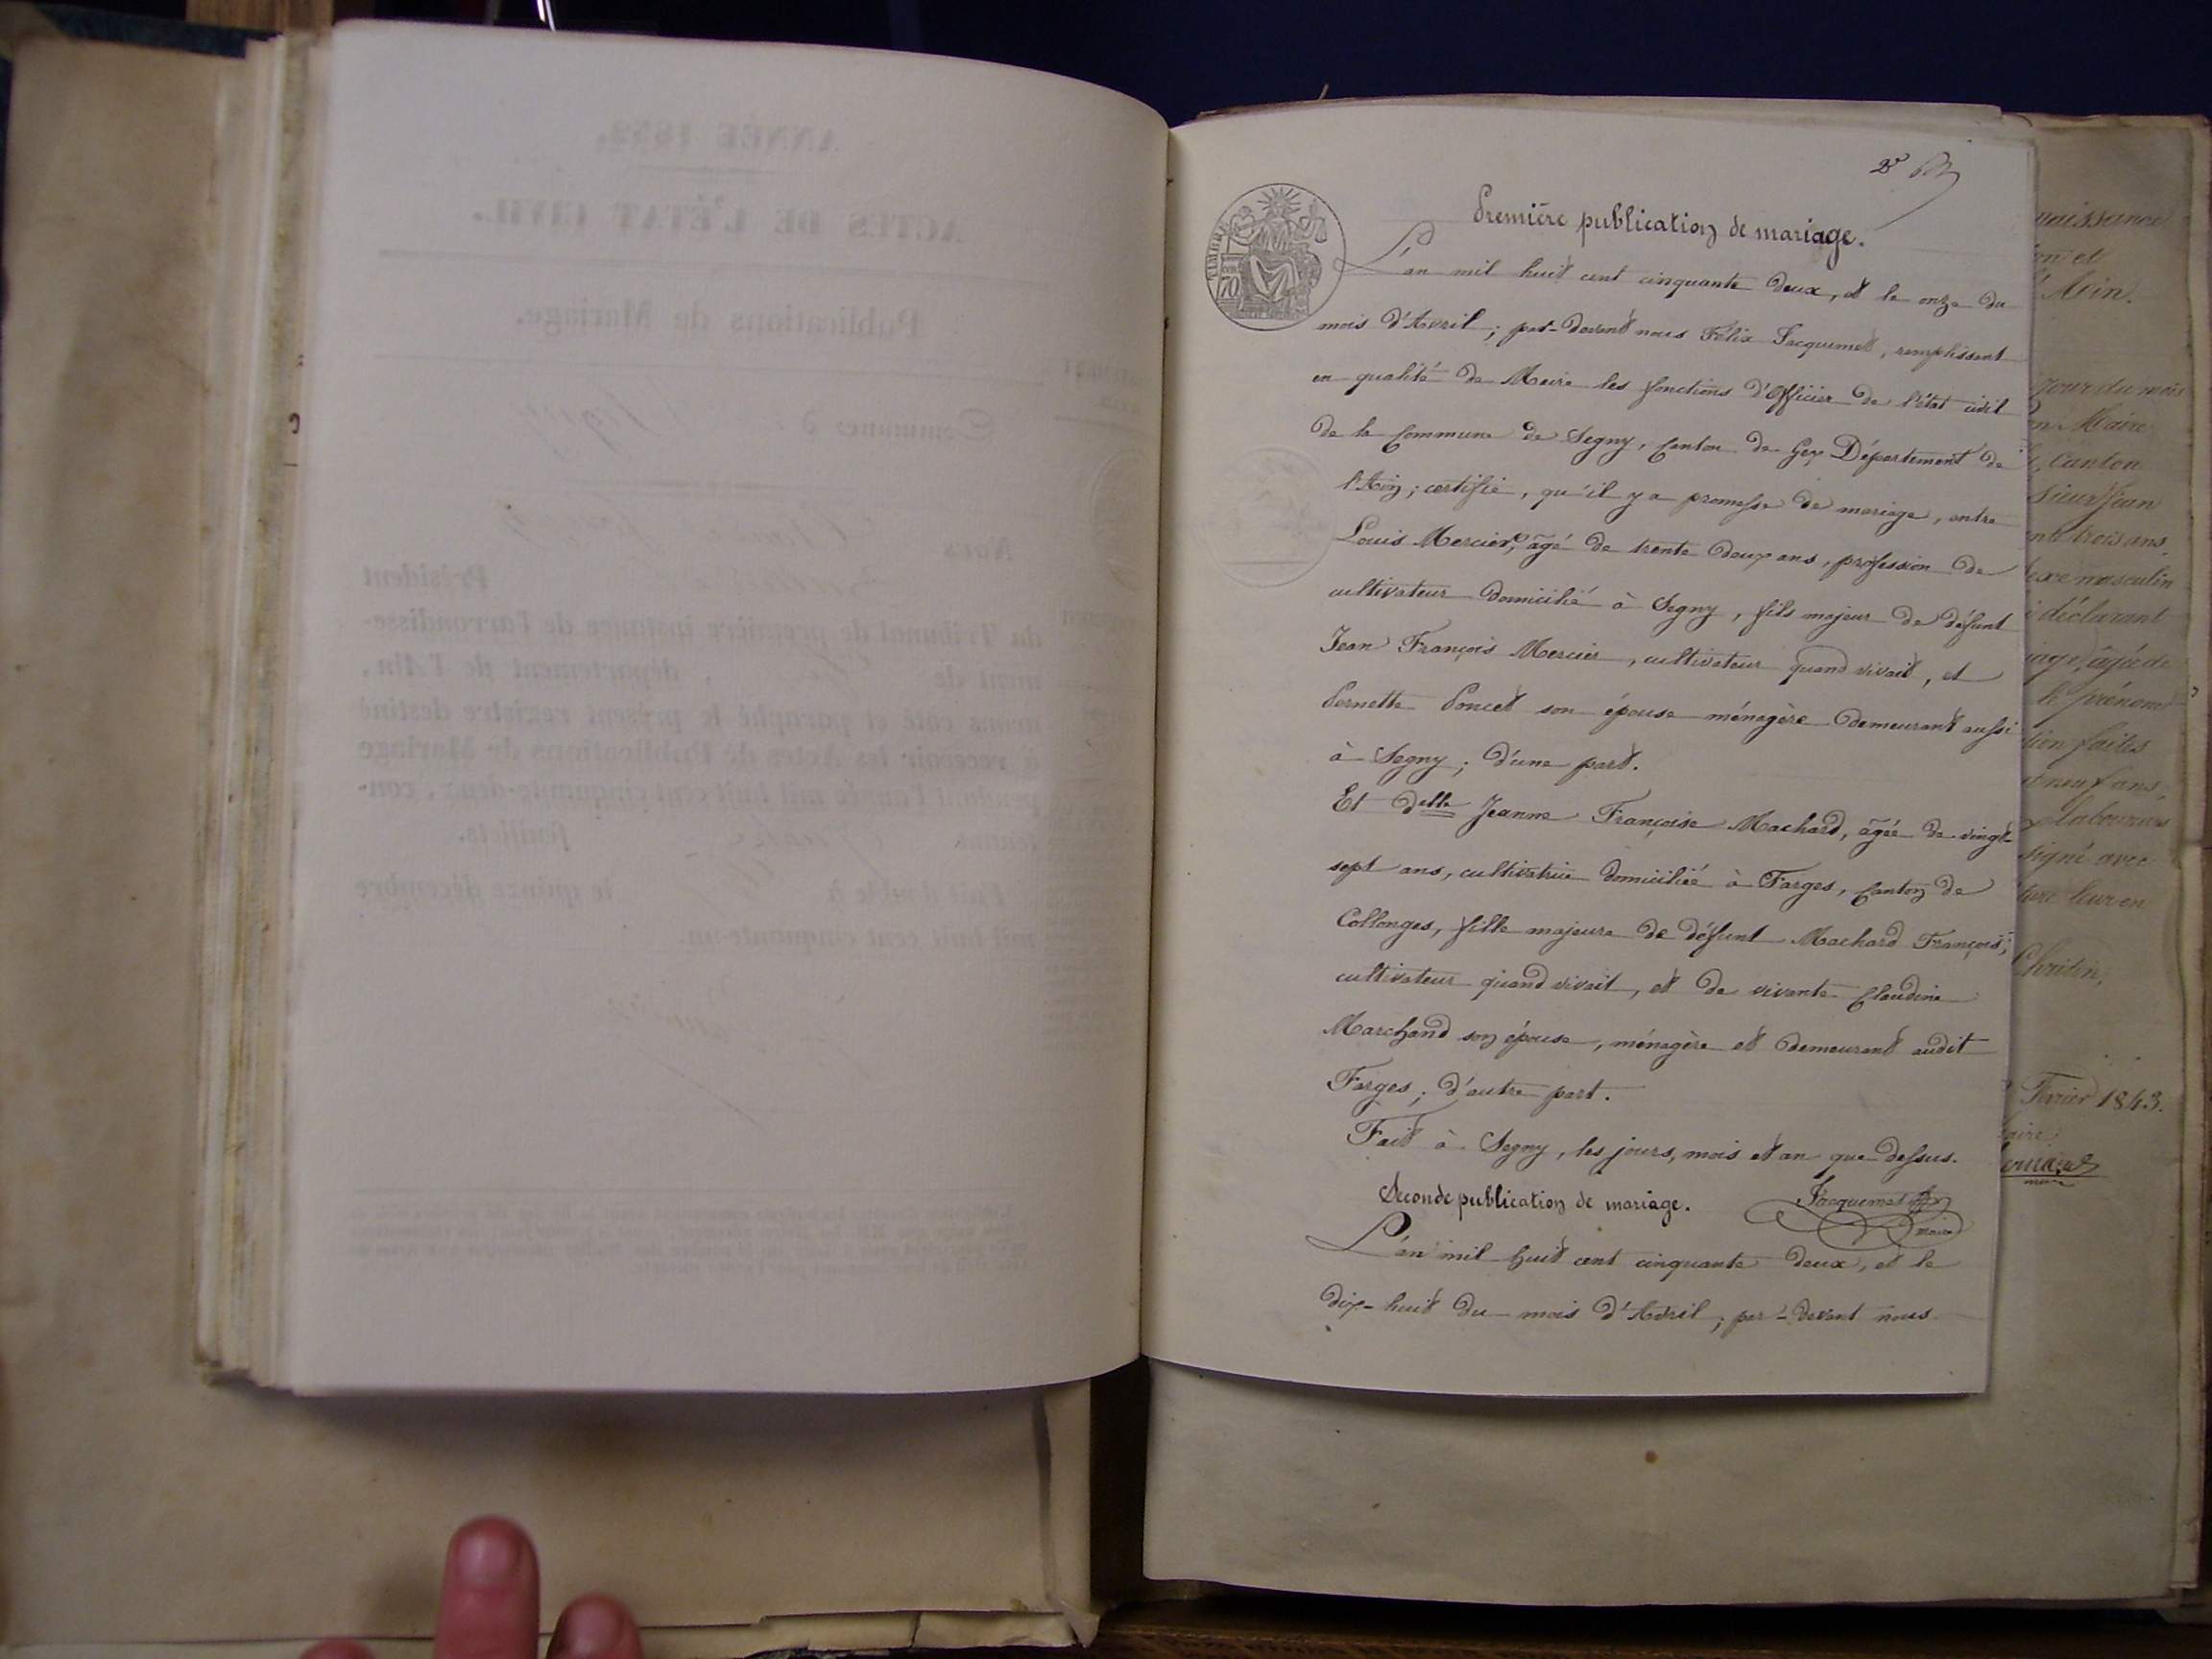 2e
Première publication de mariage.
TIMBRE
70
L'an mil huit cent cinquante deux, et le onze du
mois d'Avril ; par-devant nous Félix Jacquemet, remplissant
en qualité de Maire les fonctions d'Officier de l'état civil
de la Commune de Segny, Canton de Gex Département de
l'Ain ; certifié, qu'il y a promesse de mariage, entre
Louis Mercier, âgé de trente deux ans, profession de
cultivateur domicilié à Segny, fils majeur de défunt
Jean François Mercier, cultivateur quand vivait, et
Pernette Poncet son épouse ménagère demeurant aussi
à Segny ; d'une part.
Et delle Jeanne Françoise Machard, âgée de vingt-
sept ans, cultivatrice domiciliée à Farges, Canton de
Collonges, fille majeure de défunt Machard François,
cultivateur quand vivait, et de vivante Claudine
Marchand son épouse, ménagère et demeurant audit
Farges ; d'autre part.
Fait à Segny, les jours, mois et an que dessus.
Jacquemet
maire
Seconde publication de mariage.
L'an mil huit cent cinquante deux, et le
dix-huit du mois d'Avril ; par-devant nous
ANNÉE 1852.
ACTES DE L'ÉTAT CIVIL.
Publications de Mariage.
Commune d Segny
Nous
Président
du Tribunal de première instance de l'arrondisse-
ment de Gex, département de l'Ain,
avons coté et paraphé le présent registre destiné
à recevoir les Actes de Publications de Mariage
pendant l'année mil huit cent cinquante-deux, con-
tenant quatre feuillets.
Fait double à Gex le quinze décembre
mil huit cent cinquante-un.
naissance
on et
l'Ain.
jour du mois
en Maire
Canton
sieur Jean
trois ans,
sexe masculin
déclarant
âgée de
le prénom
tion faites
neuf ans,
laboureurs
signé avec
ture leur en
Christin,
Fevrier 1843.